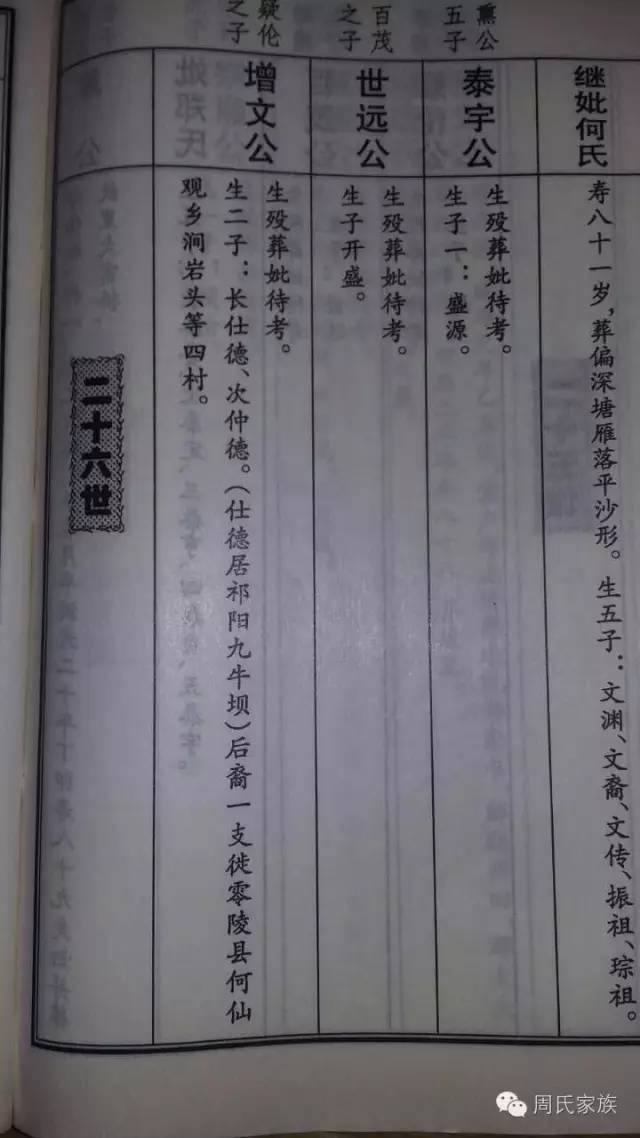 继妣何氏
寿八十一岁，葬偏深塘雁落平沙形。生五子：文渊、文裔、文传、振祖、琮祖。
熏公
五子
泰宇公
生殁葬妣待考。
生子一：盛源。
百茂
之子
世远公
生殁葬妣待考。
生子开盛。
疑伦
之子
增文公
生殁葬妣待考。
生二子：长仕德、次仲德。（仕德居祁阳九牛坝）后裔一支徙零陵县何仙
观乡涧岩头等四村。
二十六世
周氏家族